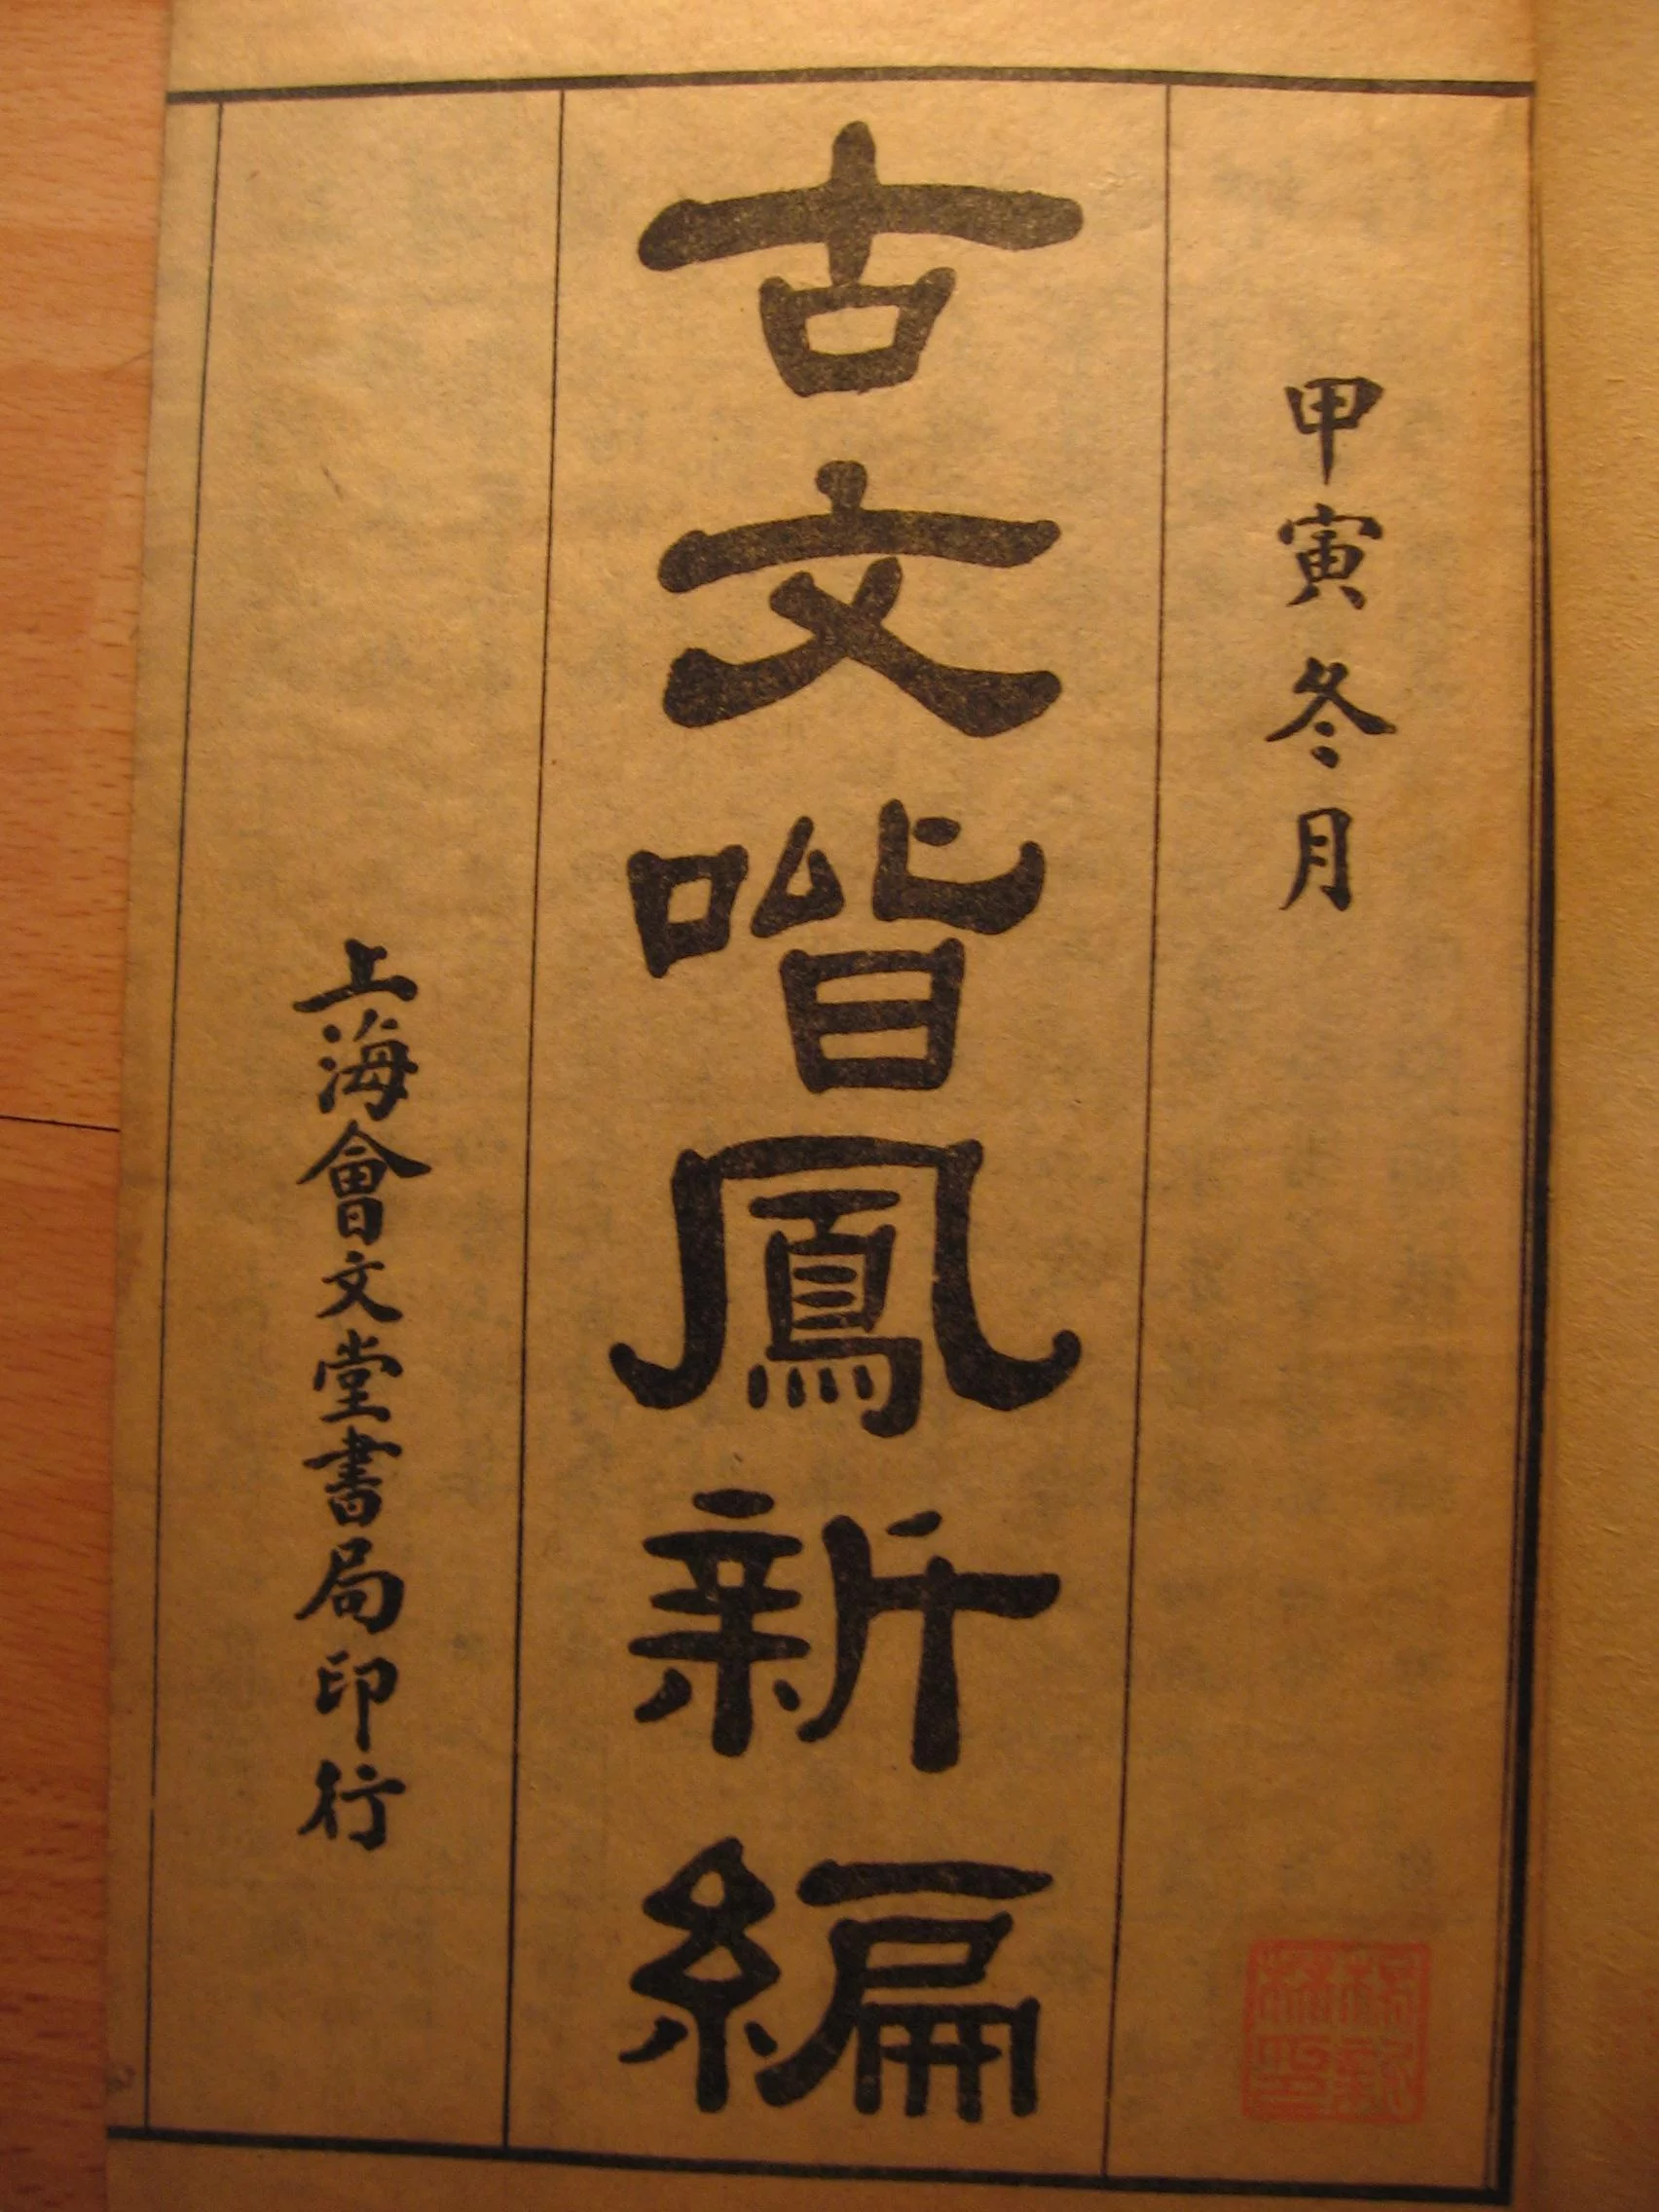 甲寅冬月
古文喈鳳新編
上海會文堂書局印行